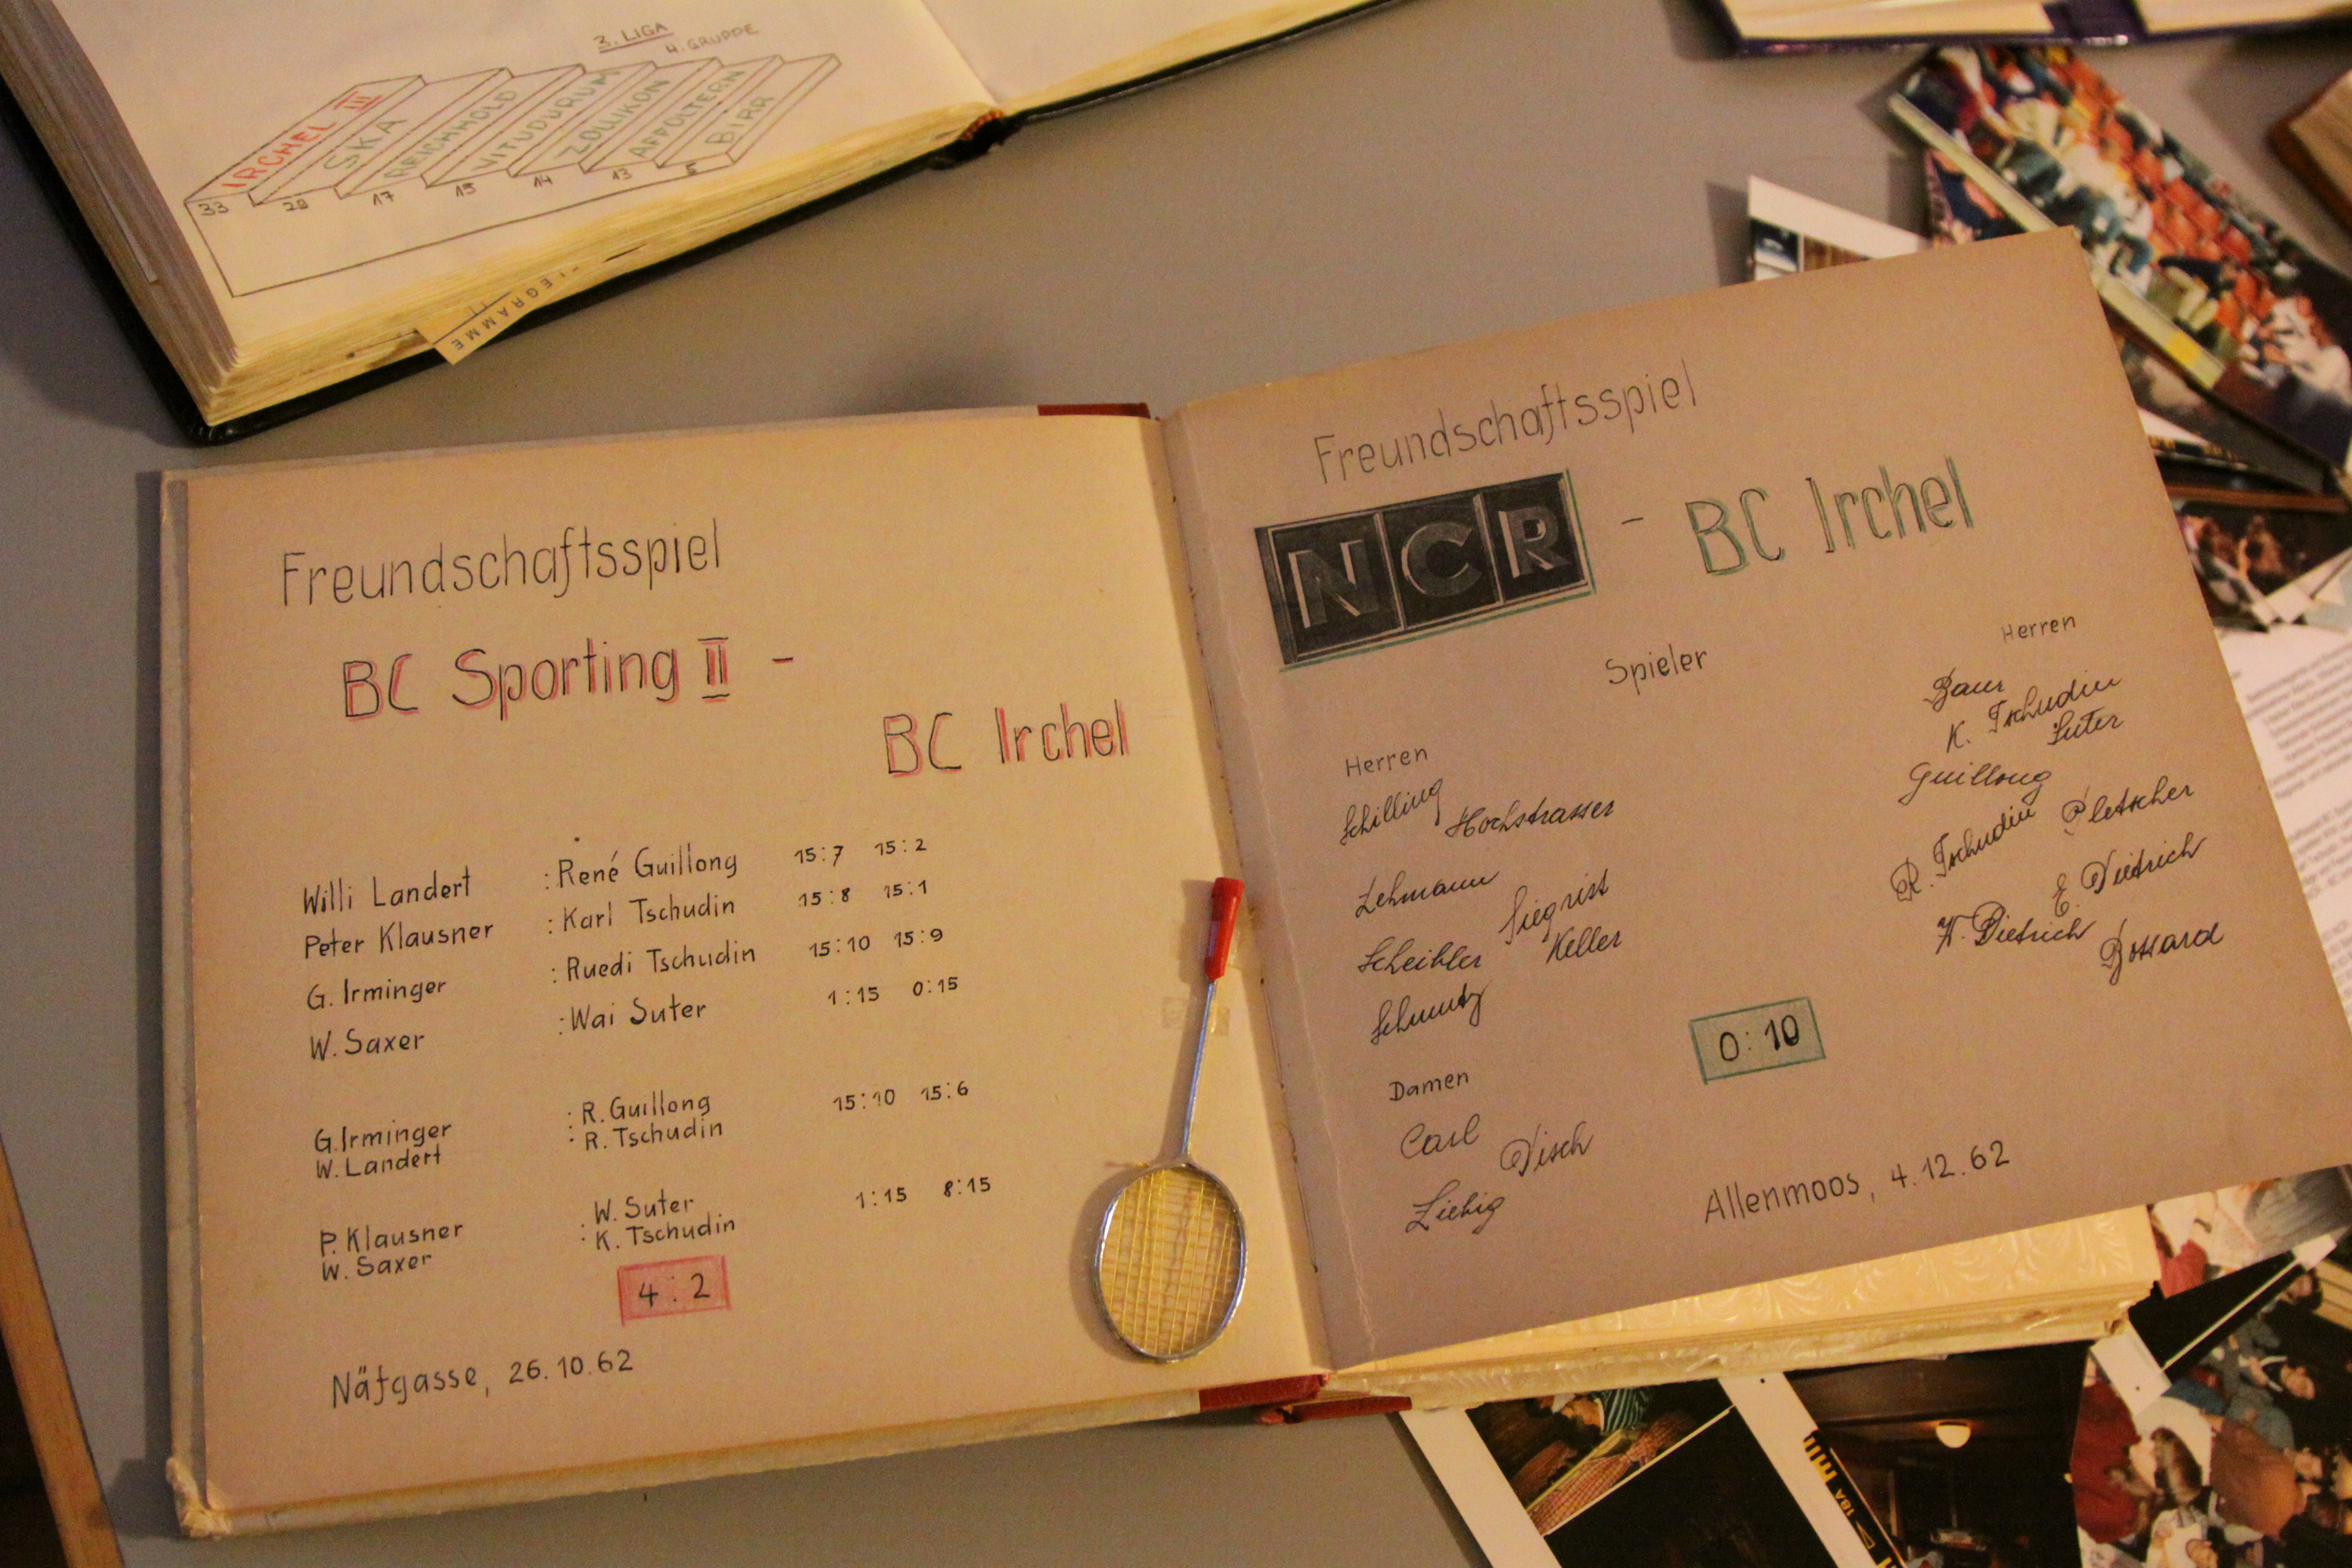 3. LIGA
4. GRUPPE
IRCHEL III
SKA
REICHHOLD
VITUDURUM
ZOLLIKON
AFFOLTERN
BIRR
33 28 17 15 14 13 5
Freundschaftsspiel
BC Sporting II -
BC Irchel
Willi Landert : René Guillong 15:7 15:2
Peter Klausner : Karl Tschudin 15:8 15:1
G. Irminger : Ruedi Tschudin 15:10 15:9
W. Saxer : Wai Suter 1:15 0:15
G. Irminger : R. Guillong 15:10 15:6
W. Landert : R. Tschudin
P. Klausner : W. Suter 1:15 8:15
W. Saxer : K. Tschudin
4:2
Näfgasse, 26.10.62
Freundschaftsspiel
NCR - BC Irchel
Spieler
Herren
Schilling
Hochstrasser
Lehmann
Siegrist
Scheibler
Keller
Schmutz
Damen
Carl
Disch
Liebig
Herren
Baur
K. Tschudin
Suter
Guillong
Pletscher
R. Tschudin
E. Dietrich
W. Dietrich
Bossard
0:10
Allenmoos, 4.12.62